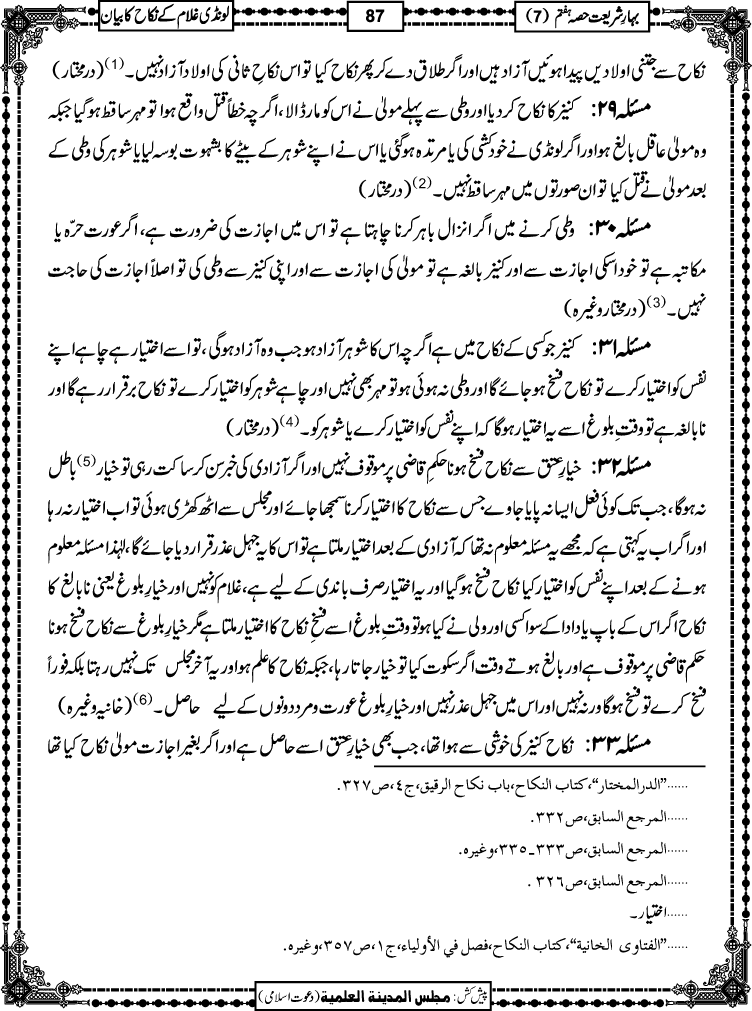 بہارِ شریعت حصہ ہفتم (7)
87
لونڈی غلام کے نکاح کا بیان
نکاح سے جتنی اولادیں پیدا ہوئیں آزاد ہیں اور اگر طلاق دے کر پھر نکاح کیا تو اس نکاحِ ثانی کی اولاد آزاد نہیں۔(1) (درمختار)
مسئلہ ۲۹: کنیز کا نکاح کر دیا اور وطی سے پہلے مولیٰ نے اس کو مار ڈالا، اگرچہ خطأً قتل واقع ہوا تو مہر ساقط ہوگیا جبکہ
وہ مولیٰ عاقل بالغ ہو اور اگر لونڈی نے خودکشی کی یا مرتدہ ہوگئی یا اس نے اپنے شوہر کے بیٹے کا بشہوت بوسہ لیا یا شوہر کی وطی کے
بعد مولیٰ نے قتل کیا تو ان صورتوں میں مہر ساقط نہیں۔(2) (درمختار)
مسئلہ ۳۰: وطی کرنے میں اگر انزال باہر کرنا چاہتا ہے تو اس میں اجازت کی ضرورت ہے، اگر عورت حرّہ یا
مکاتبہ ہے تو خود اسکی اجازت سے اور کنیز بالغہ ہے تو مولیٰ کی اجازت سے اور اپنی کنیز سے وطی کی تو اصلاً اجازت کی حاجت
نہیں۔(3) (درمختار وغیرہ)
مسئلہ ۳۱: کنیز جو کسی کے نکاح میں ہے اگرچہ اس کا شوہر آزاد ہو جب وہ آزاد ہوگی، تو اسے اختیار ہے چاہے اپنے
نفس کو اختیار کرے تو نکاح فسخ ہو جائے گا اور وطی نہ ہوئی ہو تو مہر بھی نہیں اور چاہے شوہر کو اختیار کرے تو نکاح برقرار رہے گا اور
نابالغہ ہے تو وقتِ بلوغ اسے یہ اختیار ہوگا کہ اپنے نفس کو اختیار کرے یا شوہر کو۔(4) (درمختار)
مسئلہ ۳۲: خیارِ عتق سے نکاح فسخ ہونا حکمِ قاضی پر موقوف نہیں اور اگر آزادی کی خبر سن کر ساکت رہی تو خیار(5) باطل
نہ ہوگا، جب تک کوئی فعل ایسا نہ پایا جاوے جس سے نکاح کا اختیار کرنا سمجھا جائے اور مجلس سے اٹھ کھڑی ہوئی تو اب اختیار نہ رہا
اور اگر اب یہ کہتی ہے کہ مجھے یہ مسئلہ معلوم نہ تھا کہ آزادی کے بعد اختیار ملتا ہے تو اس کا یہ جہل عذر قرار دیا جائے گا، لہٰذا مسئلہ معلوم
ہونے کے بعد اپنے نفس کو اختیار کیا نکاح فسخ ہوگیا اور یہ اختیار صرف باندی کے لیے ہے، غلام کو نہیں اور خیارِ بلوغ یعنی نابالغ کا
نکاح اگر اس کے باپ یا دادا کے سوا کسی اور ولی نے کیا ہو تو وقتِ بلوغ اسے فسخِ نکاح کا اختیار ملتا ہے مگر خیارِ بلوغ سے نکاح فسخ ہونا
حکم قاضی پر موقوف ہے اور بالغ ہوتے وقت اگر سکوت کیا تو خیار جاتا رہا، جبکہ نکاح کا علم ہو اور یہ آخر مجلس تک نہیں رہتا بلکہ فوراً
فسخ کرے تو فسخ ہوگا ورنہ نہیں اور اس میں جہل عذر نہیں اور خیارِ بلوغ عورت و مرد دونوں کے لیے حاصل۔(6) (خانیہ وغیرہ)
مسئلہ ۳۳: نکاح کنیز کی خوشی سے ہوا تھا، جب بھی خیارِ عتق اسے حاصل ہے اور اگر بغیر اجازت مولیٰ نکاح کیا تھا
......"الدرالمختار"، کتاب النکاح، باب نکاح الرقیق، ج٤، ص٣٢٧.
......المرجع السابق، ص٣٣٢.
......المرجع السابق، ص٣٣٣ـ٣٣٥، وغیرہ.
......المرجع السابق، ص٣٢٦ .
......اختیار۔
......"الفتاوی الخانیة"، کتاب النکاح، فصل في الأولیاء، ج١، ص٣٥٧، وغیرہ.
پیش کش: مجلس المدینة العلمیة (دعوتِ اسلامی)